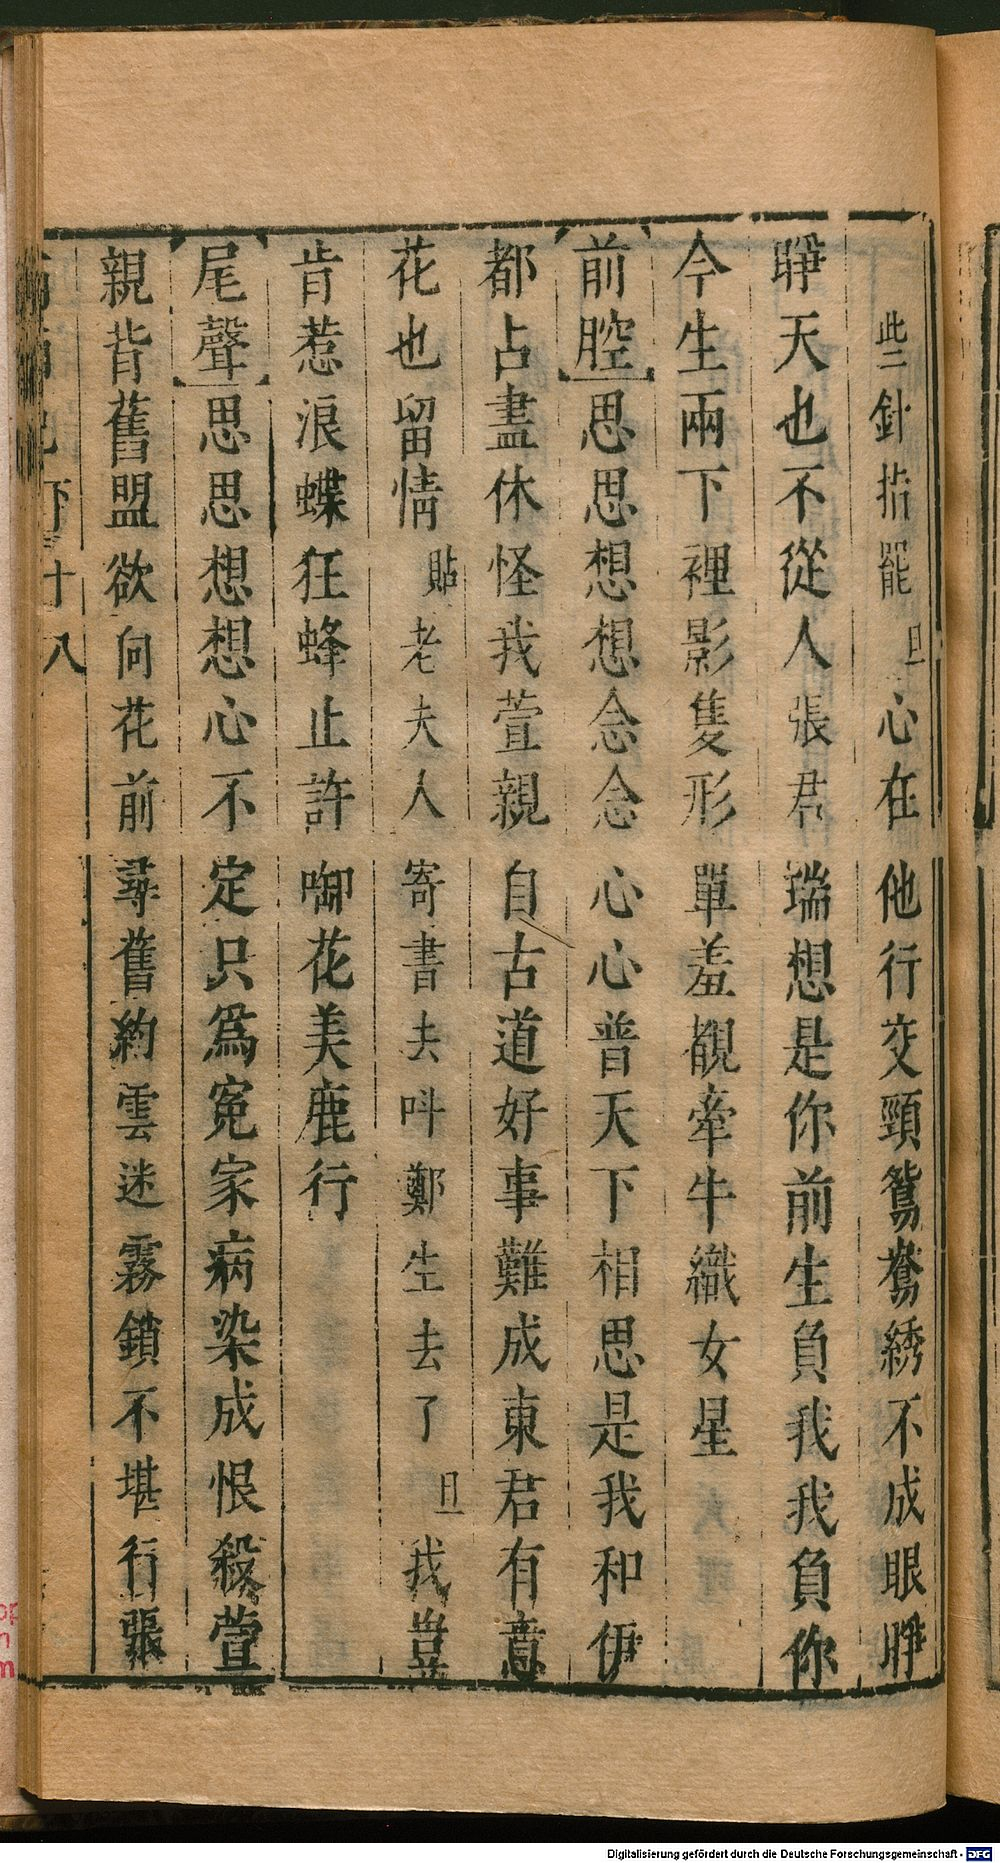 些針指罷旦心在他行交頸鴛鴦綉不成眼睜
睜天也不從人張君瑞想是你前生負我我負你
今生兩下裡影隻形單羞覩牽牛織女星
前腔思思想想念念心心普天下相思是我和伊
都占盡休怪我萱親自古道好事難成東君有意
花也留情貼老夫人寄書去呌鄭生去了旦我豈
肯惹浪蝶狂蜂止許啣花美鹿行
尾聲思思想想心不定只爲寃家病染成恨殺萱
親背舊盟欲向花前尋舊約雲迷霧鎖不堪行張
下 十八
Digitalisierung gefördert durch die Deutsche Forschungsgemeinschaft - DFG